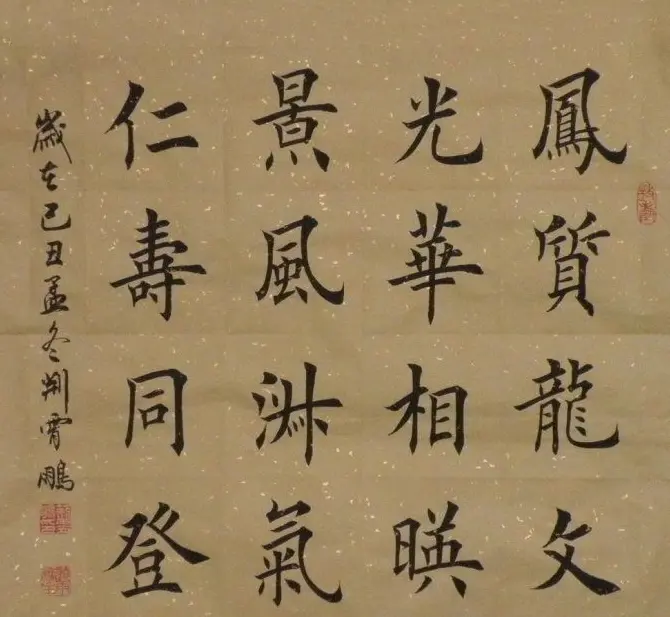 鳳質龍文
光華相暎
景風氣
仁壽同登
歲在己丑孟冬荆霄鵬